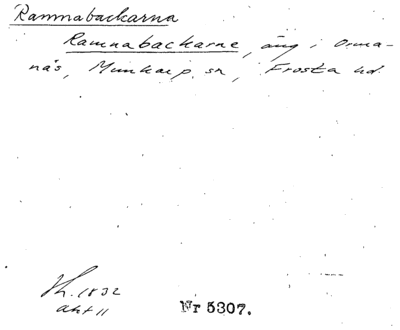 Ramnabackarna
Ramnabackarne, äng i Orma-
näs, Munkarp sn, Frosta hd.
1832
akt 11
Nr 5307.